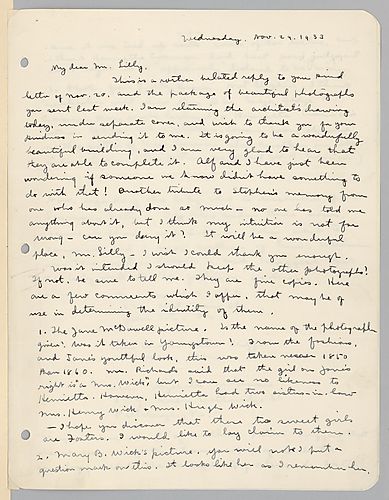 Wednesday, Nov. 29, 1933
My dear Mr. Lilly,
This is a rather belated reply to your kind
letter of Nov. 20. and the package of beautiful photographs
you sent last week. I am returning the architect's drawing
today, under separate cover, and wish to thank you for your
kindness in sending it to me. It is going to be a wonderfully
beautiful building, and I am very glad to hear that
they are able to complete it. Alf and I have just been
wondering if someone we know didn't have something to
do with that! Another tribute to Stephen's memory from
one who has already done so much - no one has told me
anything about it, but I think my intuition is not far
wrong - can you deny it? It will be a wonderful
place, Mr. Lilly - I wish I could thank you enough.
Was it intended I should keep the other photographs?
If not, be sure to tell me. They are fine copies. Here
are a few comments which I offer, that may be of
use in determining the identity of them.
1. The Jane McDowell picture. Is the name of the photographer
given? Was it taken in Youngstown? From the fashions,
and Jane's youthful look, this was taken nearer 1850
than 1860. Mr. Richards said that the girl on Jane's
right is a "Mrs. Wick", but I can see no likeness to
Henrietta. However, Henrietta had two sisters-in-law
Mrs. Henry Wick & Mrs. Hugh Wick.
- I hope you discover that these two sweet girls
are Fosters. I would like to lay claim to them.
2. Mary B. Wick's picture, you will note I put a
question mark on this. It looks like her as I remember her,